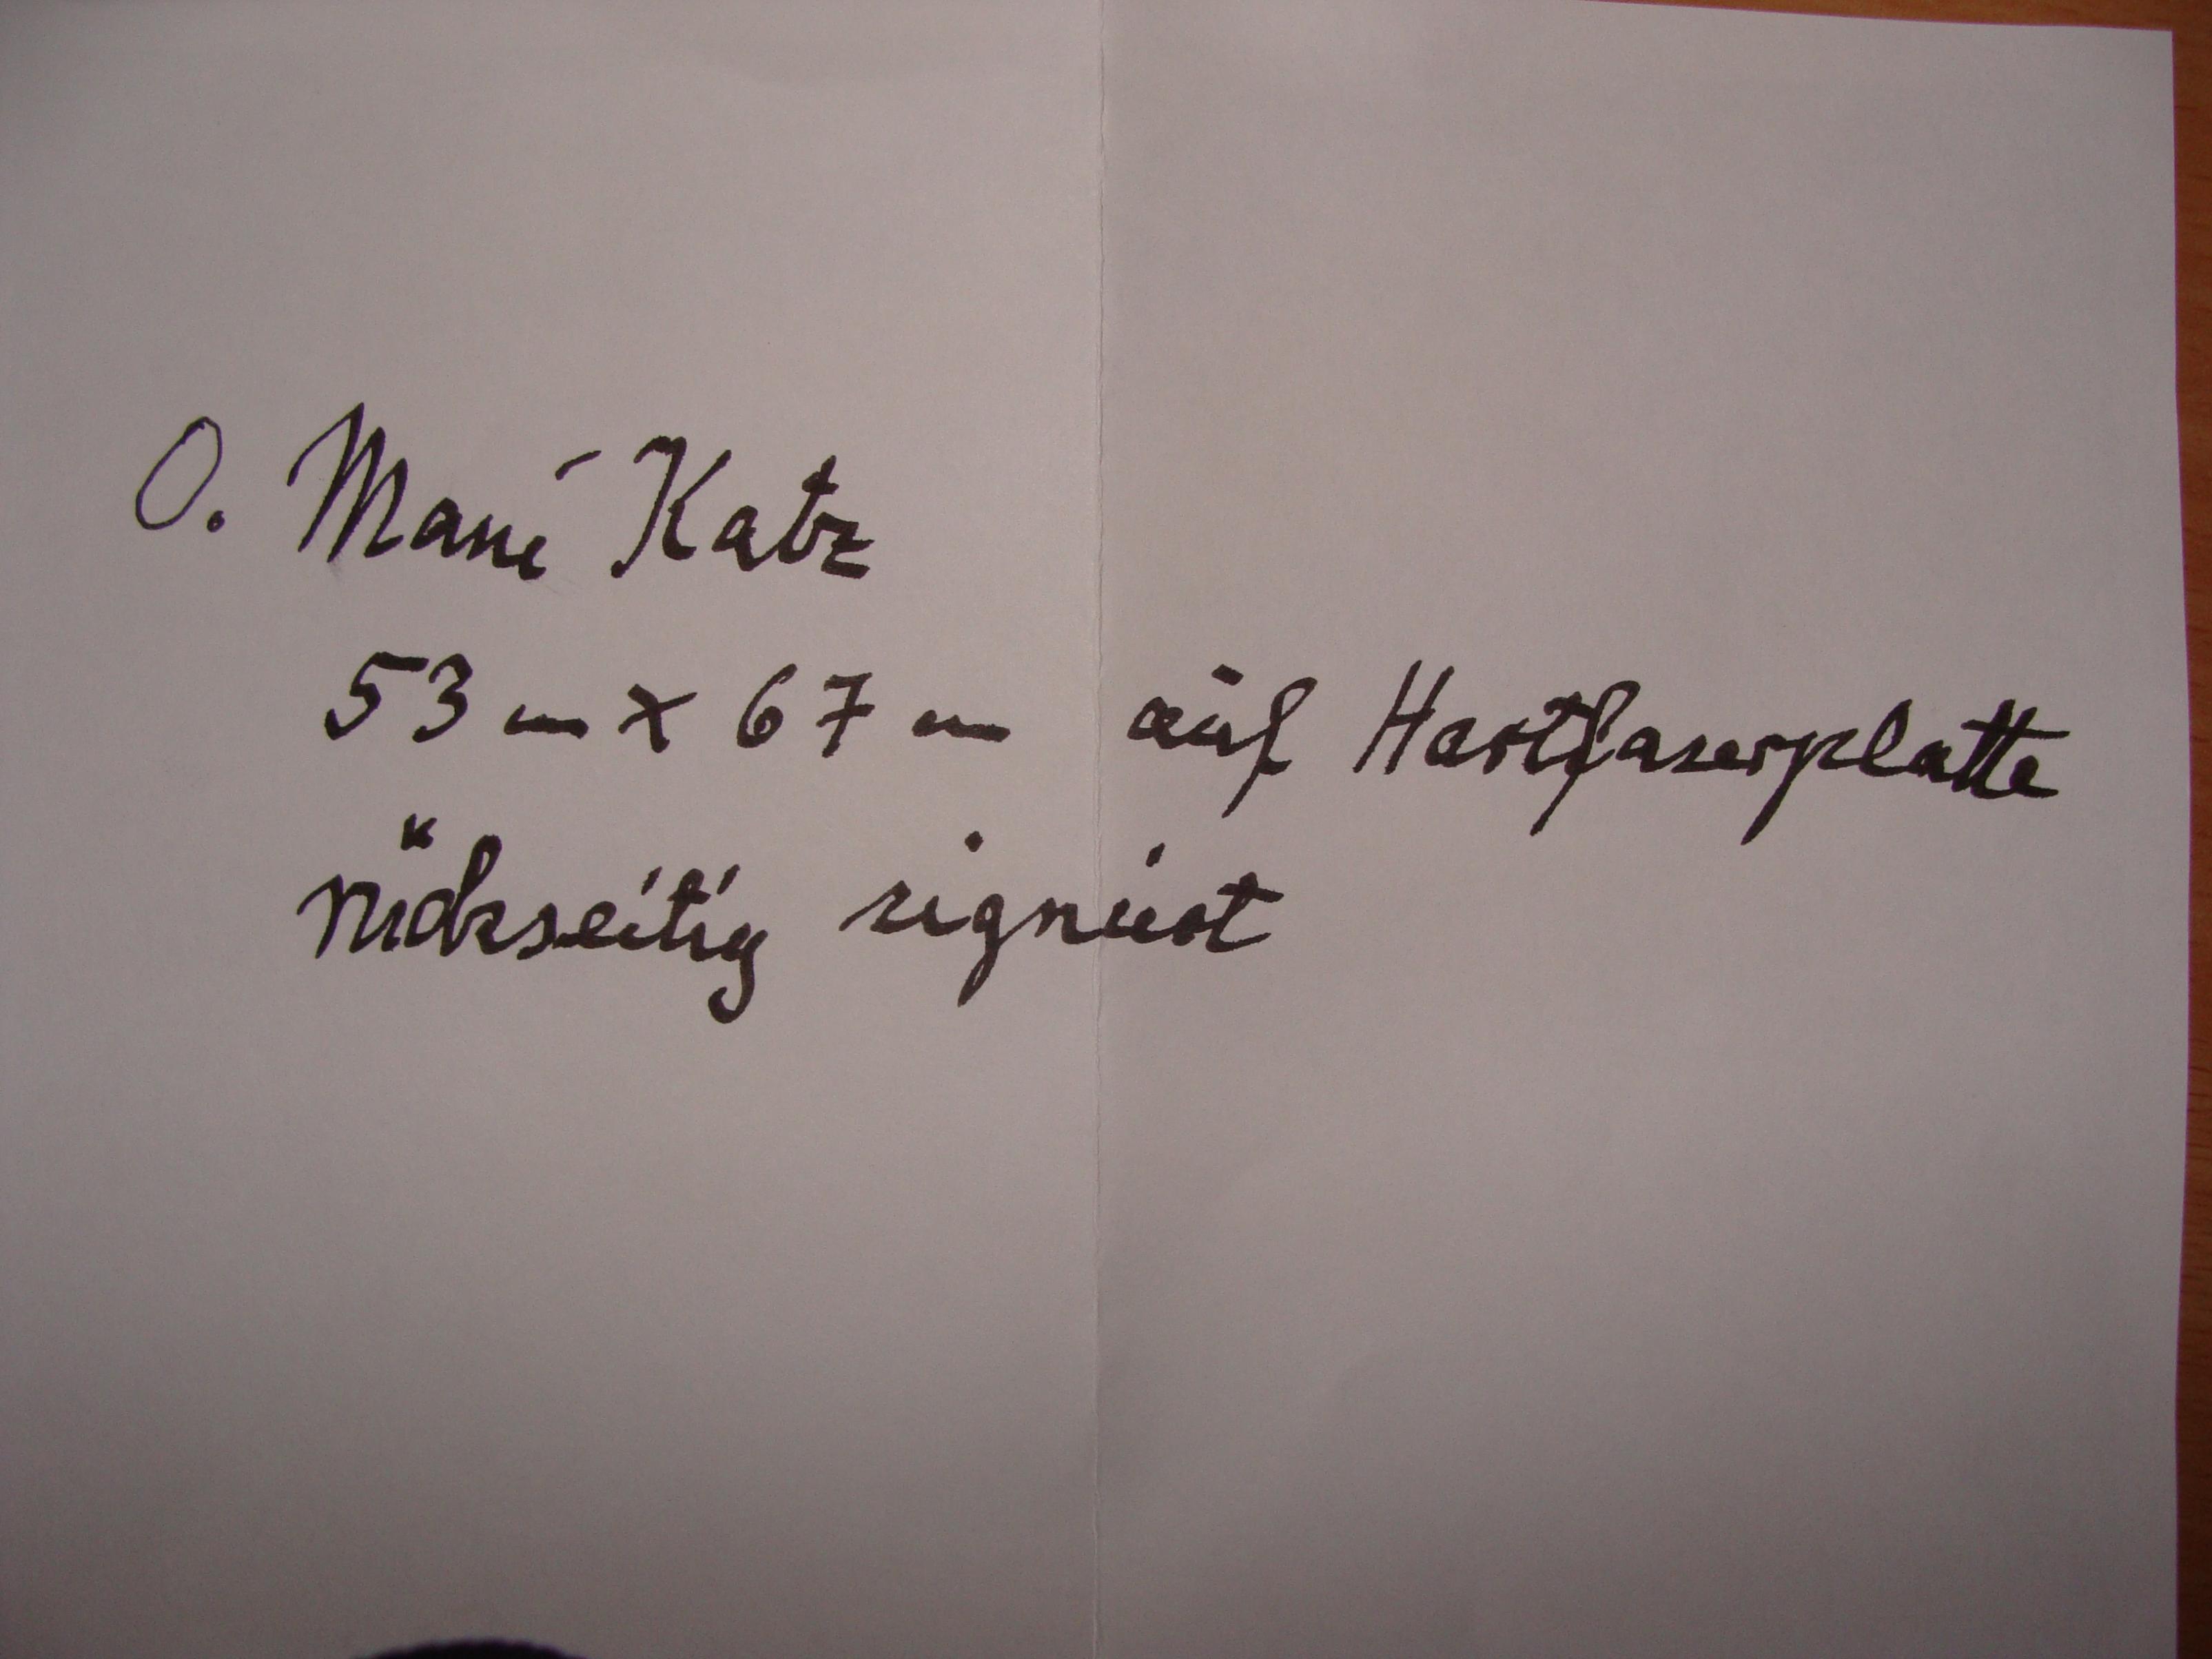 O. Mané Katz
53 cm x 67 cm auf Hartfaserplatte
rückseitig signiert